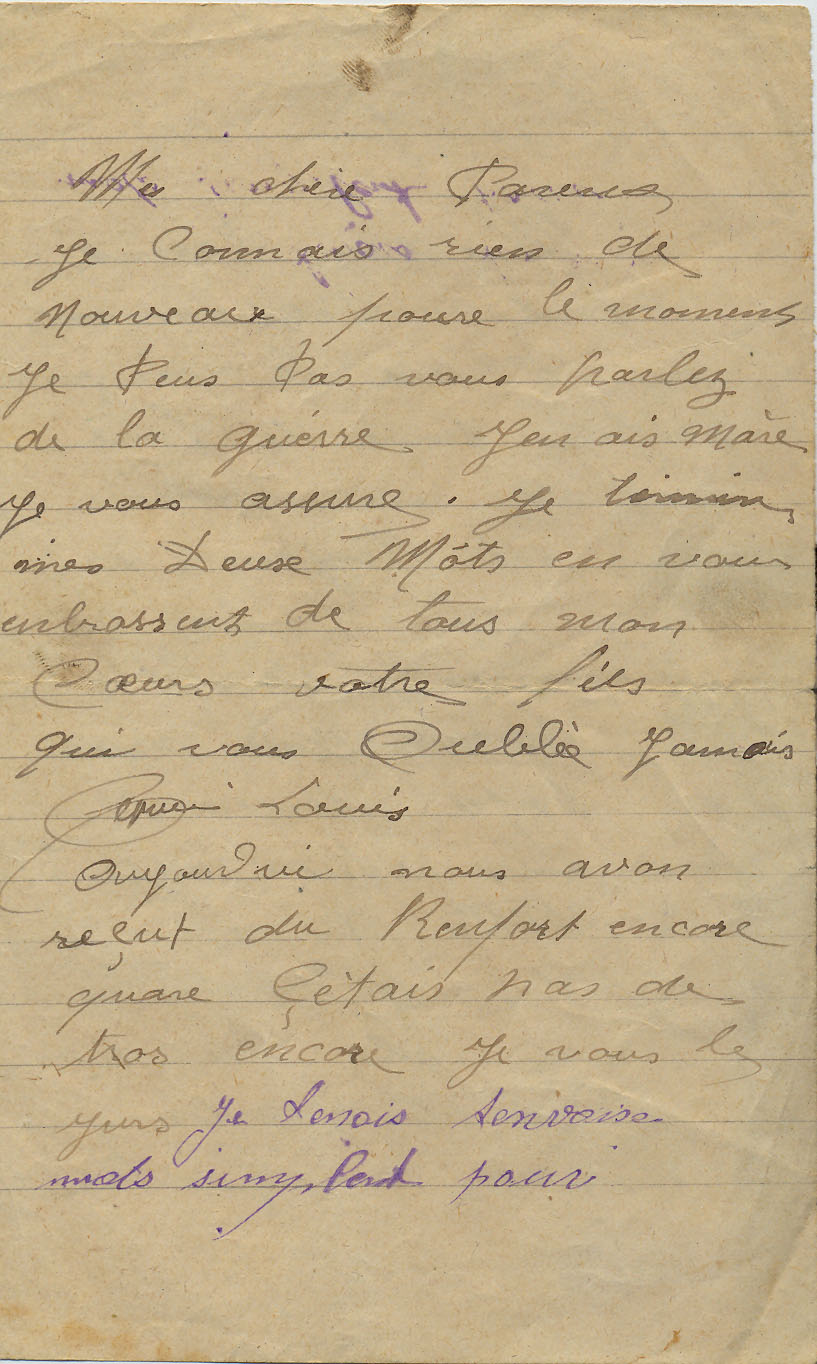 Ma chère Parents
Je Connais rien de
nouveaux poure le moment
Je Peus Pas vous parlez
de la guérre Jen ais Mare
Je vous assure. Je termine
mes Deux Môts en vous
enbrassent de tous mon
Cœurs votre fils
qui vous Oublie Jamais
Louis
Oujourdui nous avon
reçut du Renfort encore
quare Çétais pas de
trop encore Je vous le
jure Je tenais
mots pour